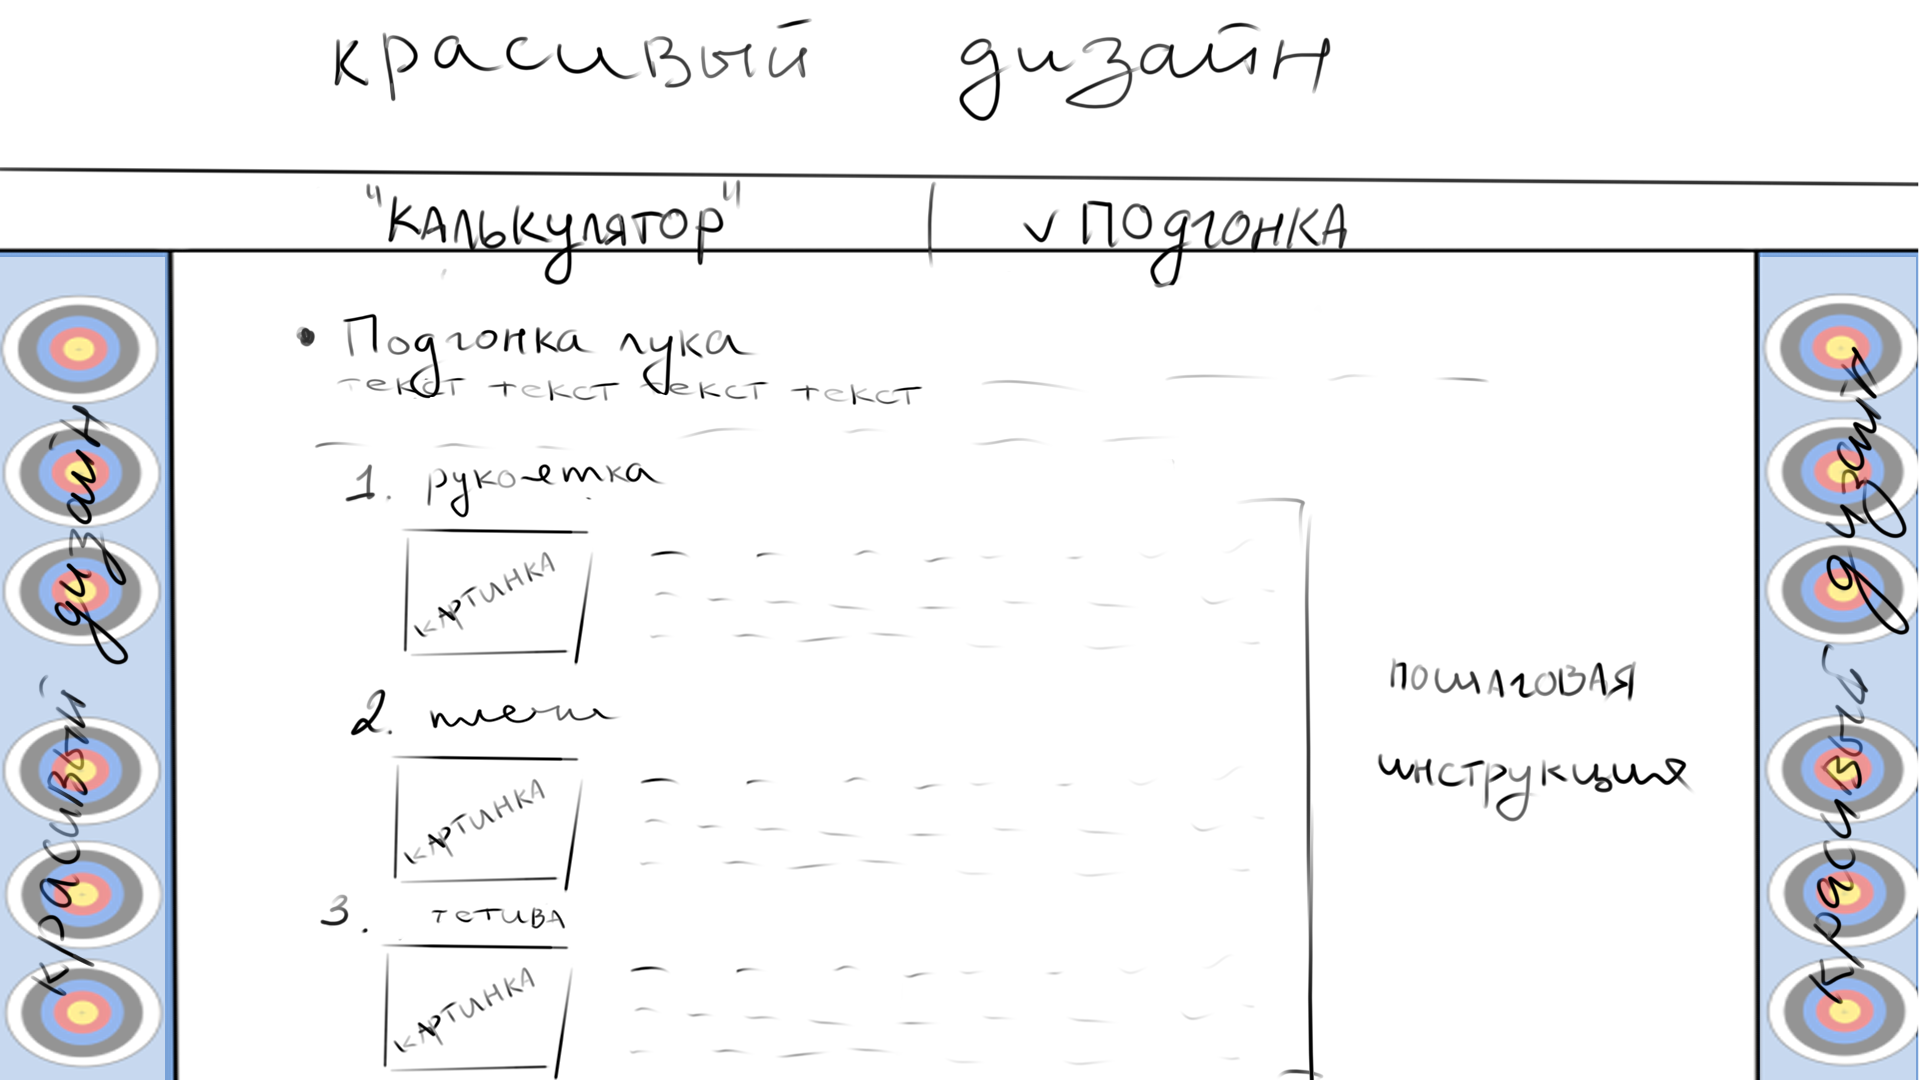 красивый дизайн
"КАЛЬКУЛЯТОР" | ✓ ПОДГОНКА
• Подгонка лука
текст текст текст текст
1. рукоятка
КАРТИНКА
2. плечи
КАРТИНКА
3. ТЕТИВА
КАРТИНКА
пошаговая
инструкция
красивый дизайн
красивый дизайн